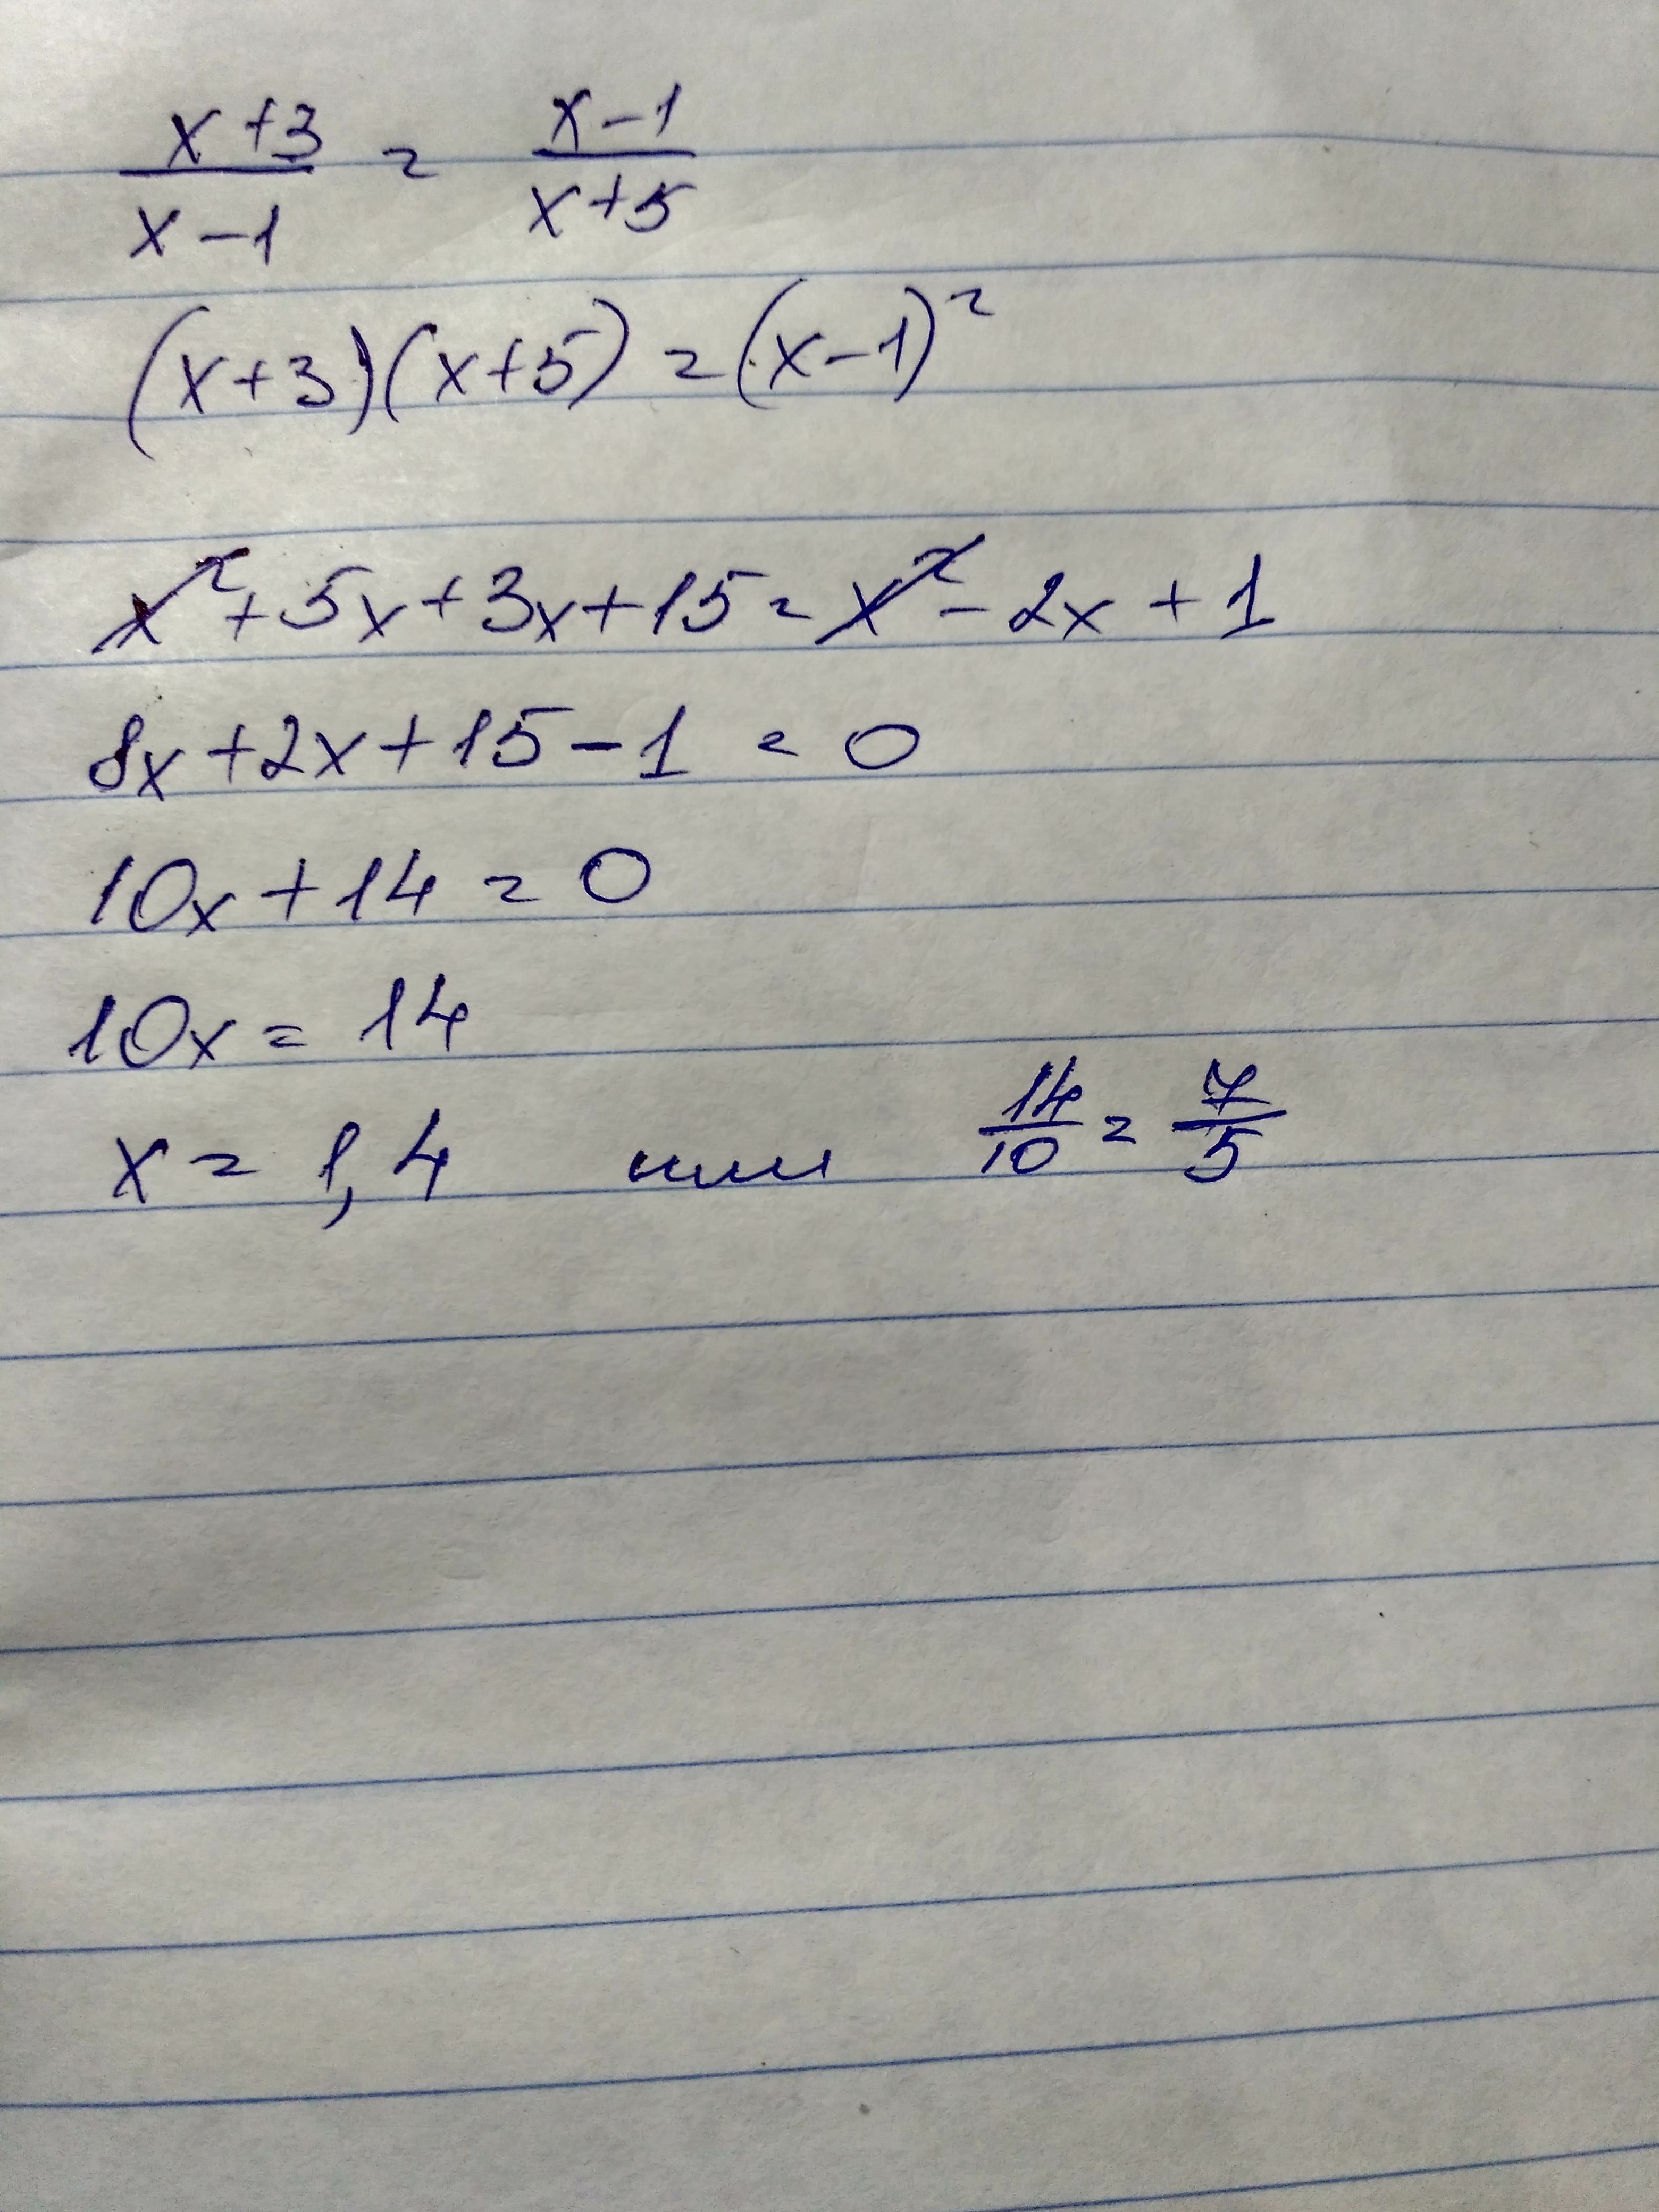 x+3/x-1 = x-1/x+5
(x+3)(x+5)=(x-1)²
x²+5x+3x+15=x²-2x+1
8x+2x+15-1=0
10x+14=0
10x=14
x=1,4 или 14/10=7/5